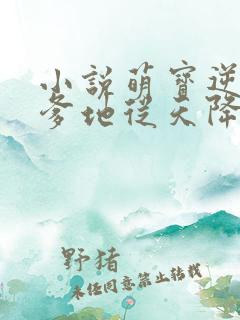 小說萌寶逆
爹地從天降
野猪
未经同意禁止转载